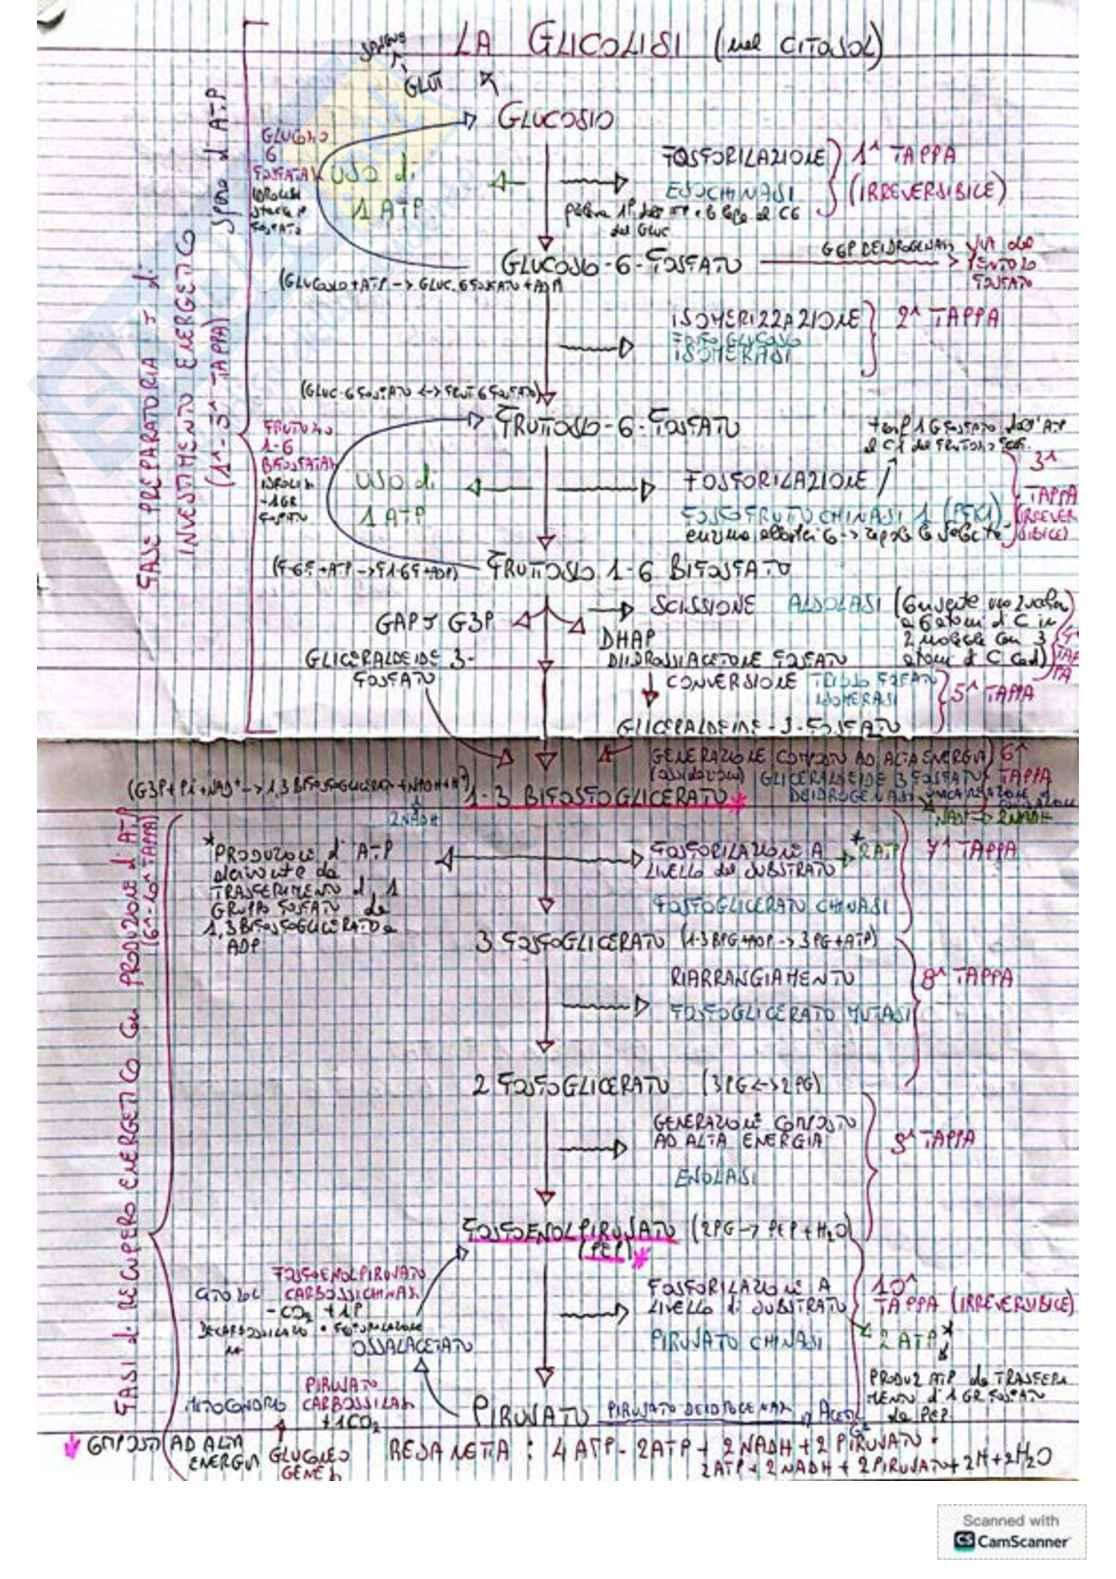 LA GLICOLISI (nel CITOSOL)
SANGUE
GLUT
GLUCOSIO
GLUCOSIO
6
FOSFATASI
IDROLISI
FOSFATO
USO di
1 ATP
FOSFORILAZIONE
ESOCHINASI
1^ TAPPA
(IRREVERSIBILE)
GLUCOSIO-6-FOSFATO
G6P DEIDROGENASI
VIA del
PENTOSO
FOSFATO
(GLUCOSIO+ATP -> GLUC.6FOSFATO+ADP)
FASE PREPARATORIA
INVESTIMENTO ENERGETICO
(1^-5^ TAPPA)
Spesa di ATP
ISOMERIZZAZIONE
FOSFOGLUCOSIO
ISOMERASI
2^ TAPPA
(GLUC-6FOSFATO <-> FRUT6FOSFATO)
FRUTTOSIO-6-FOSFATO
FRUTTOSIO
1-6
BIFOSFATASI
IDROLISI
-1GR
FOSFATO
USO di
1 ATP
FOSFORILAZIONE
FOSFOFRUTTOCHINASI 1 (PFK1)
3^
TAPPA
(IRREVER
SIBILE)
(F6F+ATP->F1-6F+ADP)
FRUTTOSIO 1-6 BIFOSFATO
SCISSIONE ALDOLASI
2 molecole con 3
atomi di C cad)
4^
TAP
PA
GAP o G3P
GLICERALDEIDE 3-
FOSFATO
DHAP
DIIDROSSIACETONE FOSFATO
CONVERSIONE TRIOSO FOSFATO
ISOMERASI
5^ TAPPA
GLICERALDEIDE-3-FOSFATO
GENERAZIONE COMPOSTO AD ALTA ENERGIA
(ossidazione) GLICERALDEIDE 3 FOSFATO
DEIDROGENASI
6^
TAPPA
2NAD+ -> 2NADH
(G3P+Pi+NAD+ -> 1,3 BIFOSFOGLICERATO+NADH+H+)
1-3 BIFOSFOGLICERATO *
2NADH
FASI di RECUPERO ENERGETICO con PRODUZIONE di ATP
(6^-10^ TAPPA)
*PRODUZIONE d'ATP
derivante da
TRASFERIMENTO di 1
GRUPPO FOSFATO da
1,3 BIFOSFOGLICERATO a
ADP
FOSFORILAZIONE A
LIVELLO del SUBSTRATO
*2ATP
FOSFOGLICERATO CHINASI
7^ TAPPA
3 FOSFOGLICERATO (1-3 BPG+ADP -> 3PG+ATP)
RIARRANGIAMENTO
FOSFOGLICERATO MUTASI
8^ TAPPA
2 FOSFOGLICERATO (3PG<->2PG)
GENERAZIONE COMPOSTO
AD ALTA ENERGIA
ENOLASI
9^ TAPPA
FOSFOENOLPIRUVATO (2PG -> PEP+H2O)
(PEP) *
FOSFOENOLPIRUVATO
CITOSOL CARBOSSICHINASI
-CO2 +1P
OSSALACETATO
FOSFORILAZIONE A
LIVELLO di SUBSTRATO
PIRUVATO CHINASI
10^
TAPPA (IRREVERSIBILE)
2 ATP*
PRODUZ ATP da TRASFERI
MENTO d'1 GR FOSFATO
da PEP
PIRUVATO
MITOCONDRIO CARBOSSILASI
+1CO2
PIRUVATO PIRUVATO DEIDROGENASI
GLUCONEO
GENESI
COMPOSTI AD ALTA
ENERGIA
RESA NETTA : 4 ATP - 2ATP + 2NADH + 2 PIRUVATO =
2ATP + 2NADH + 2PIRUVATO + 2H + 2H2O
Scanned with
CS CamScanner